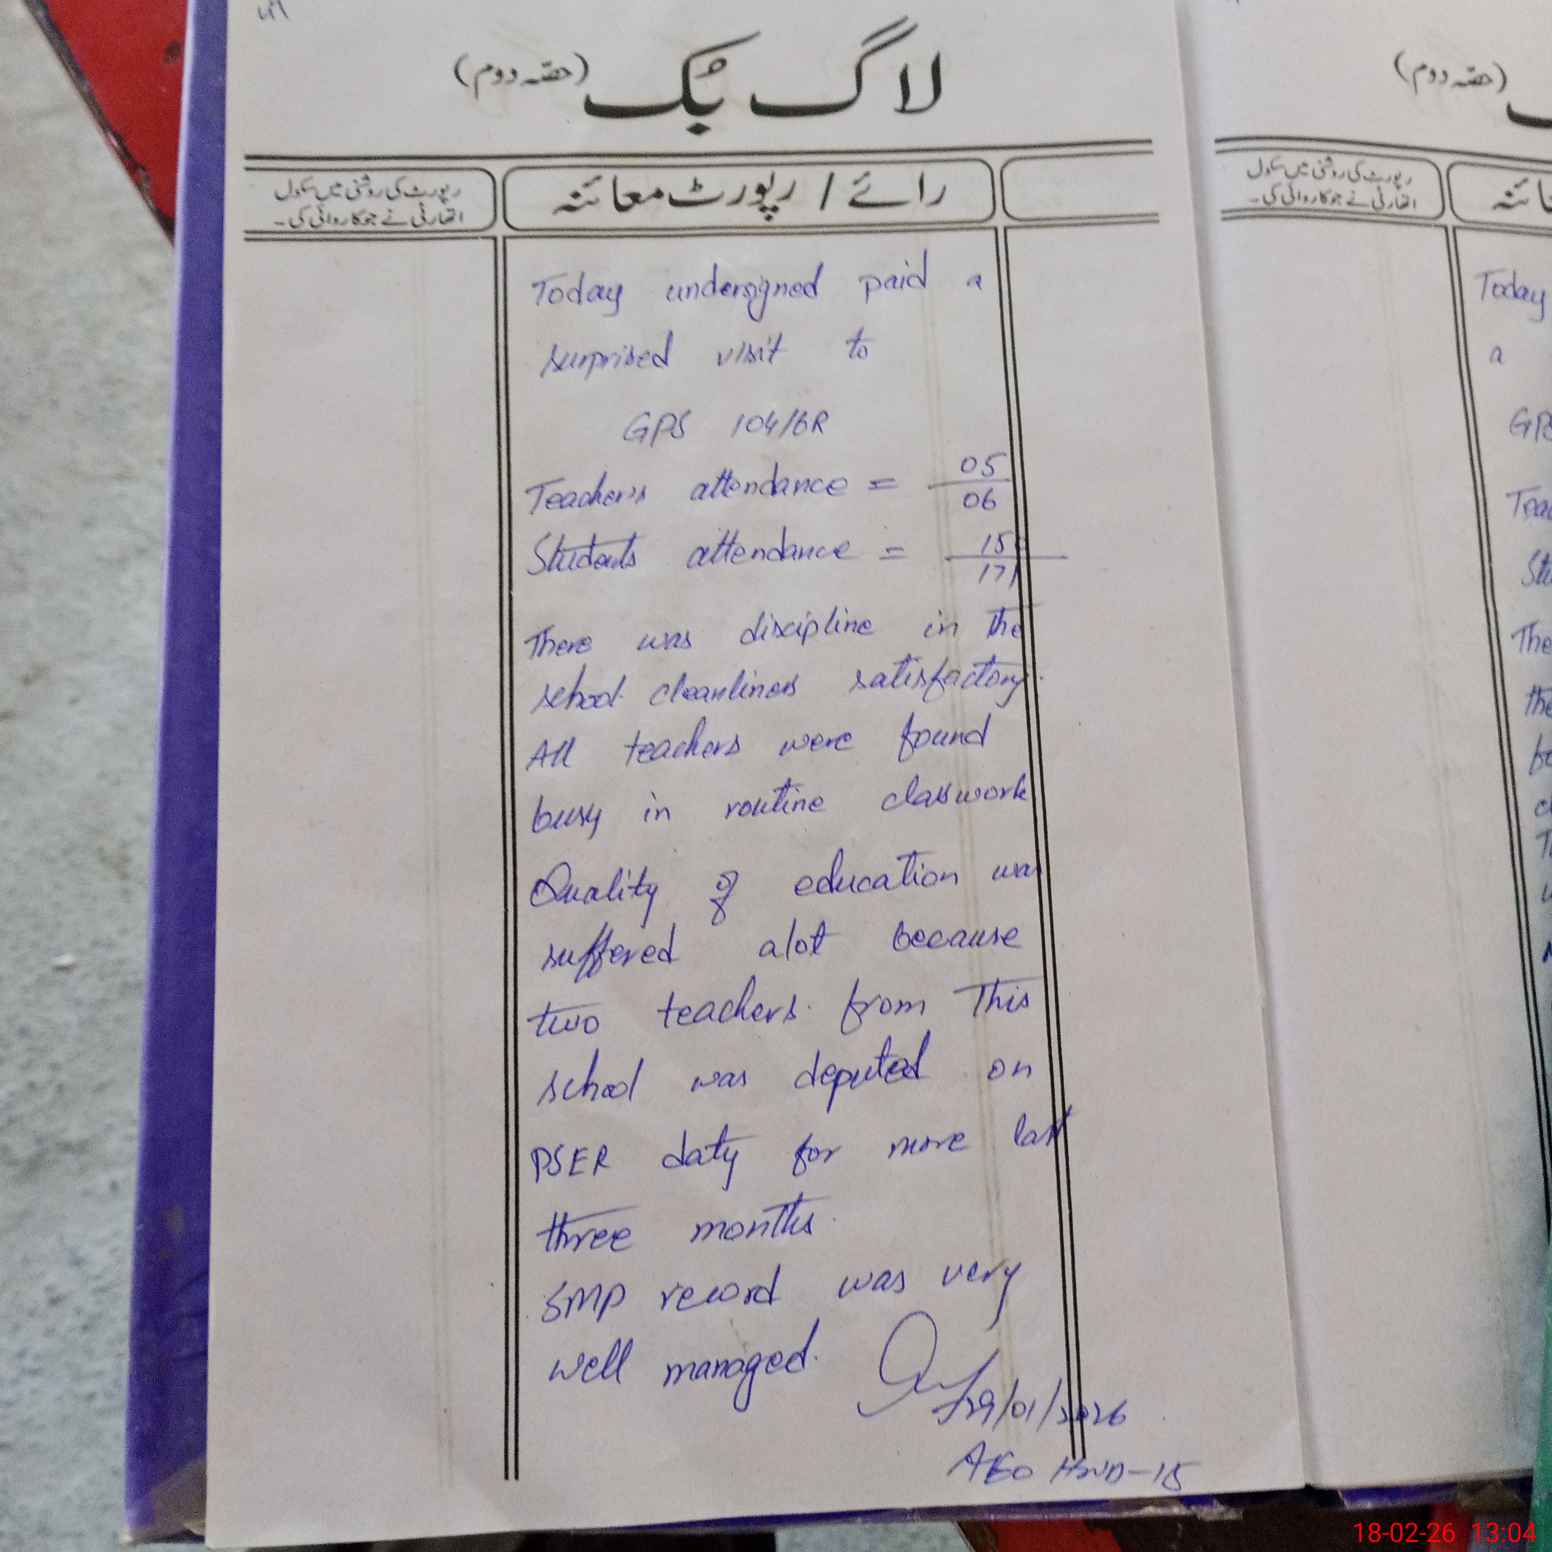 لاگ بک (حصہ دوم)
رپورٹ کی روشنی میں سکول
اتھارٹی نے جو کاروائی کی۔
رائے / رپورٹ معائنہ
Today undersigned paid a
surprised visit to
GPS 104/6R
Teachers attendance = 05
06
Students attendance =
171
There was discipline in the
school. cleanliness satisfactory.
All teachers were found
busy in routine classwork
Quality of education was
suffered alot because
two teachers. from This
school was deputed on
PSER duty for more last
three months.
SMP record was very
well managed.
29/01/2026
AEO HND-15
(حصہ دوم)
رپورٹ کی روشنی میں سکول
اتھارٹی نے جو کاروائی کی۔
Today
a
18-02-26 13:04